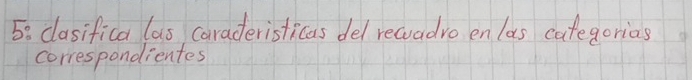 5: clasifica las caracteristicas del recuadro en las categorias
correspondientes